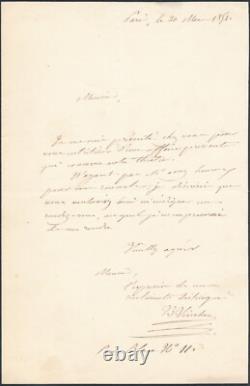 Paris, le 20 Mars 1851.
Monsieur,
Je me suis présenté chez vous pour
vous entretenir d'une affaire pressante
qui concerne votre théâtre.
N'ayant pas
pour vous rencontrer, je désirerais que
vous voulussiez bien m'assigner un
rendez-vous, auquel je m'empresserai
de me rendre.
Veuillez agréer
Monsieur,
l'expression de mes
sentiments distingués
Rue Blanche No 11.